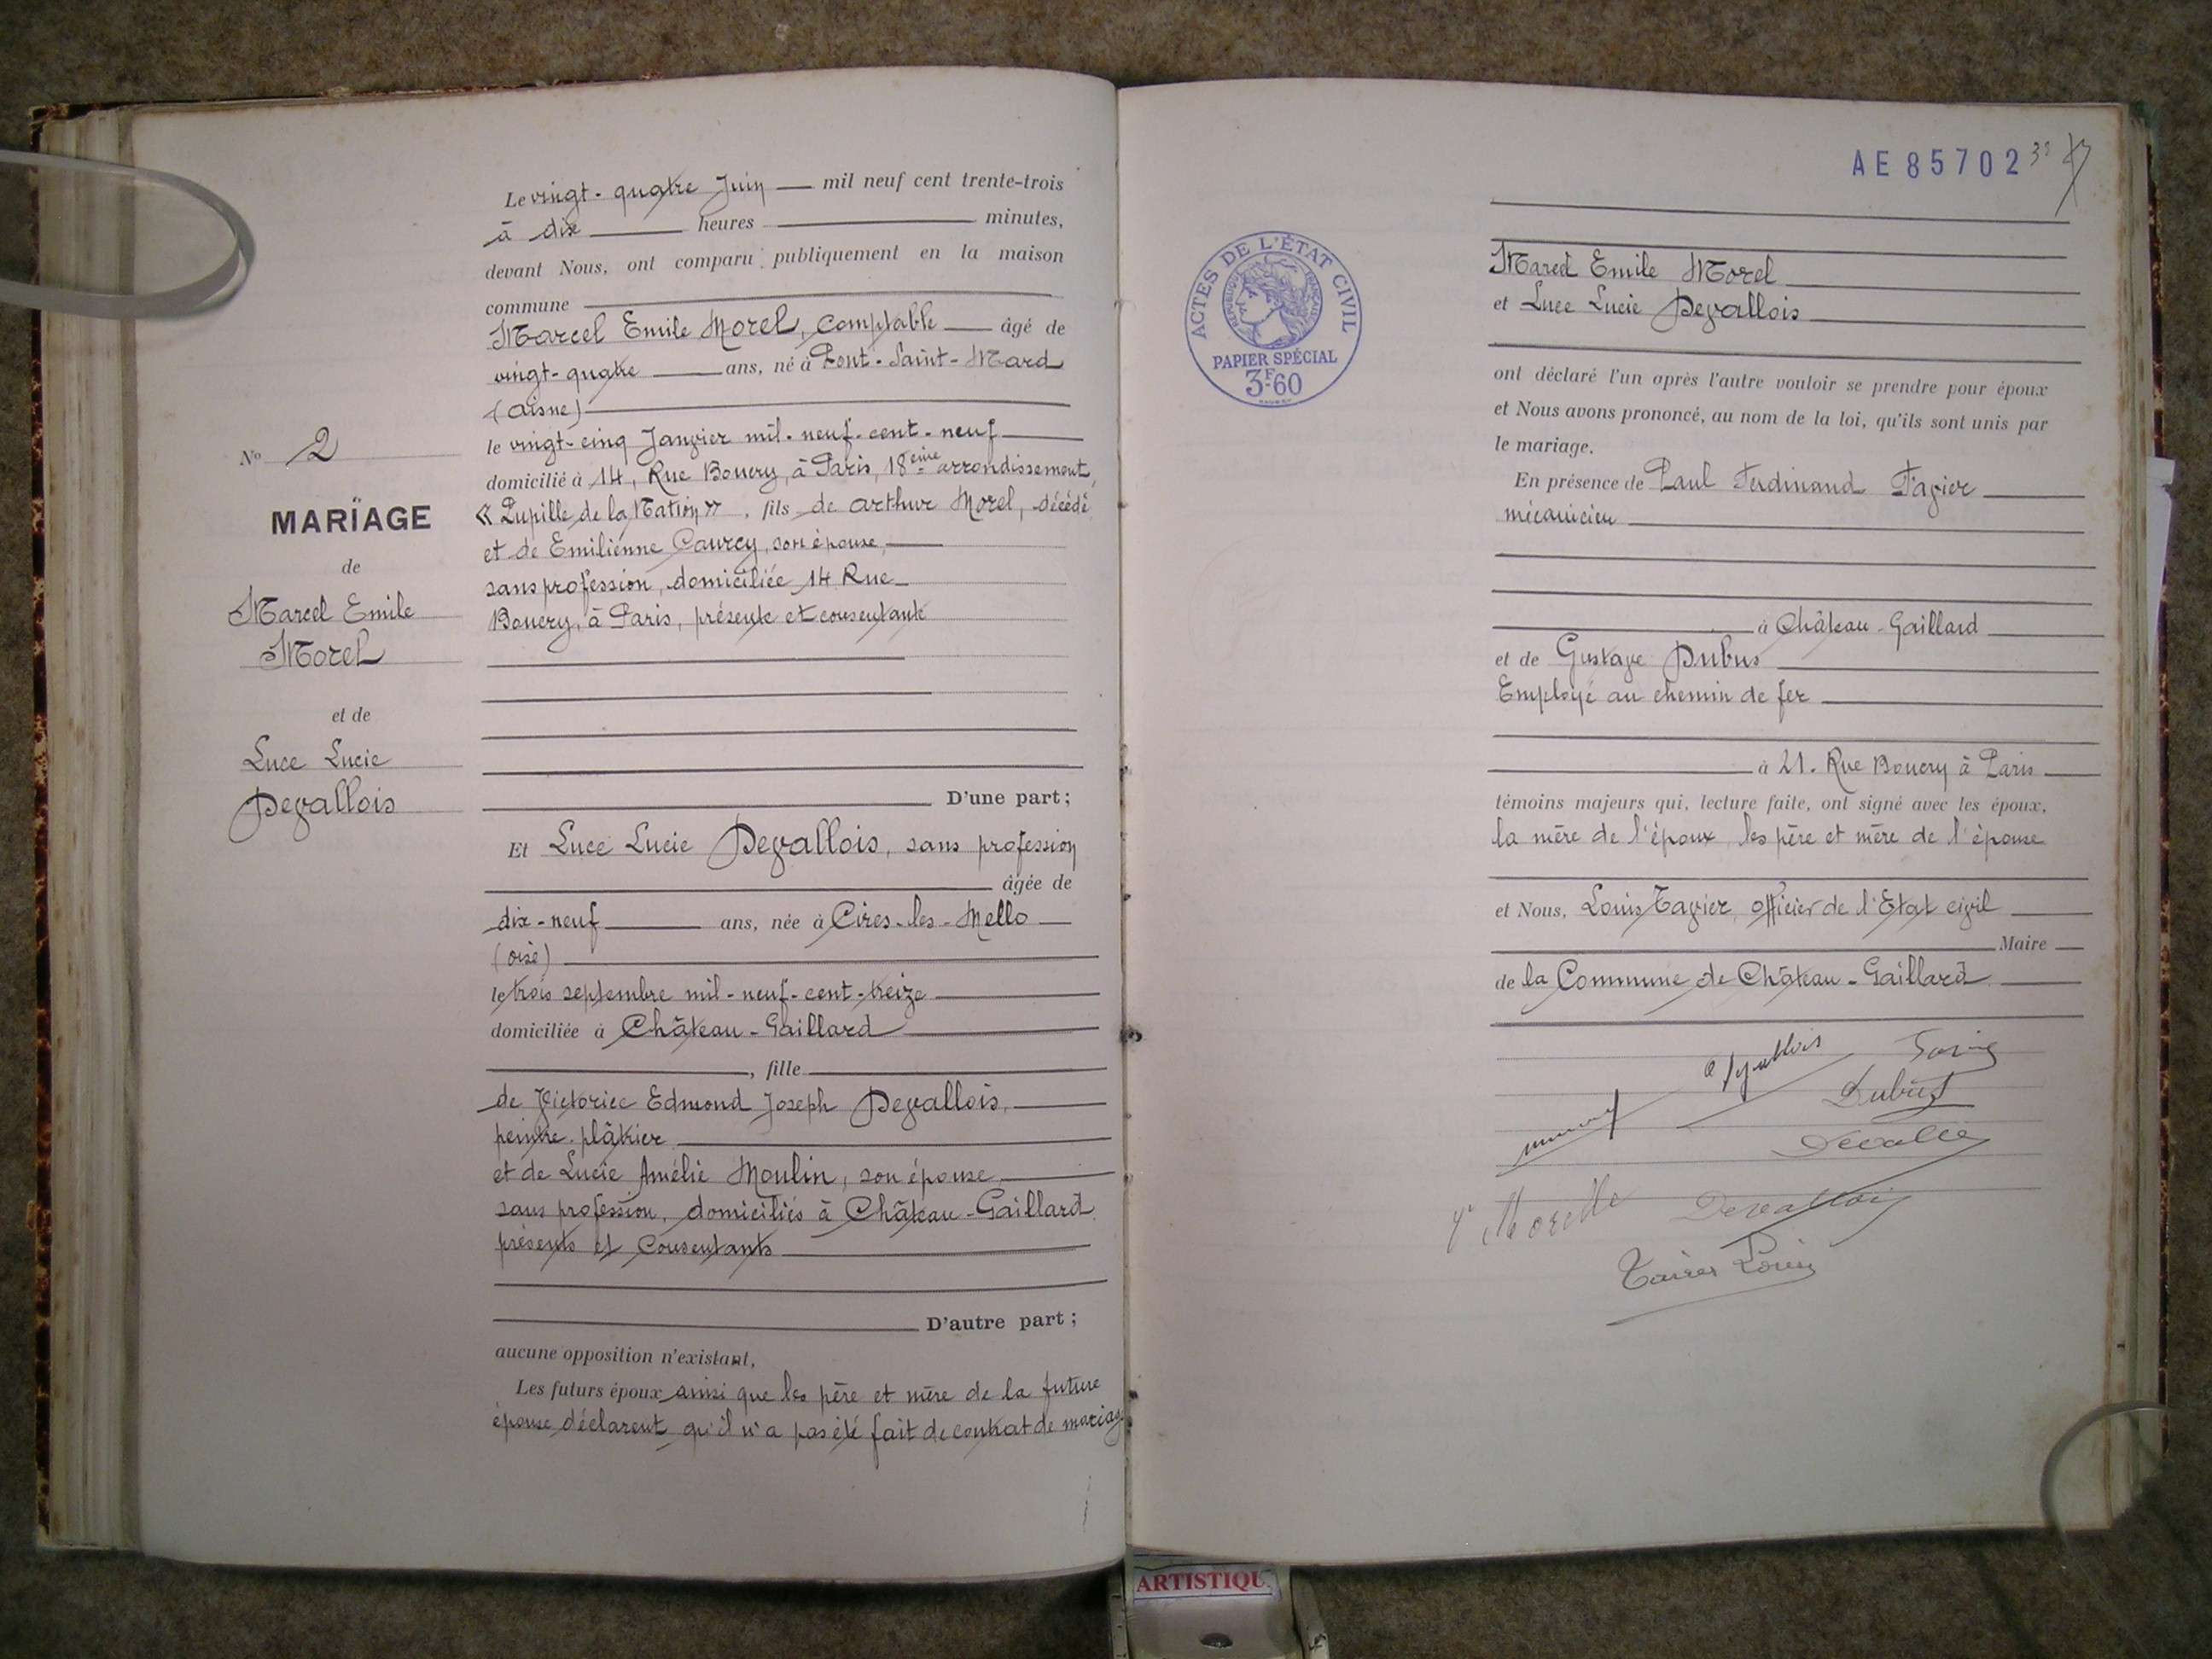 Le vingt-quatre Juin mil neuf cent trente-trois
à dix heures minutes,
devant Nous, ont comparu publiquement en la maison
commune
Marcel Emile Morel, Comptable âgé de
vingt-quatre ans, né à Pont-Saint-Mard
(Aisne)
le vingt-cinq Janvier mil-neuf-cent-neuf
domicilié à 14, Rue Boucry, à Paris, 18ème arrondissement,
« Pupille de la Nation », fils de Arthur Morel, décédé
et de Emilienne Caurey, son épouse,
sans profession, domiciliée 14 Rue
Boucry, à Paris, présente et consentante
D'une part;
Et Luce Lucie Devallois, sans profession
âgée de
dix-neuf ans, née à Cires-les-Mello
(oise)
le trois septembre mil-neuf-cent-treize
domiciliée à Château-Gaillard
, fille
de Victorice Edmond Joseph Devallois,
peintre-plâtrier
et de Lucie Amélie Moulin, son épouse,
sans profession, domiciliés à Château-Gaillard,
présents et Consentants
D'autre part;
aucune opposition n'existant,
Les futurs époux ainsi que les père et mère de la future
épouse déclarent qu'il n'a pas été fait de contrat de mariage
No 2
MARIAGE
de
Marcel Emile
Morel
et de
Luce Lucie
Devallois
AE 85702
ACTES DE L'ÉTAT CIVIL
RÉPUBLIQUE FRANÇAISE
PAPIER SPÉCIAL
3F.60
Marcel Emile Morel
et Luce Lucie Devallois
ont déclaré l'un après l'autre vouloir se prendre pour époux
et Nous avons prononcé, au nom de la loi, qu'ils sont unis par
le mariage.
En présence de Paul Ferdinand Tavier
mécanicien
à Château-Gaillard
et de Gustave Dubus
Employé au chemin de fer
à 21. Rue Boucry à Paris
témoins majeurs qui, lecture faite, ont signé avec les époux,
la mère de l'époux, les père et mère de l'épouse
et Nous, Louis Tavier, officier de l'Etat civil
Maire
de la Commune de Château-Gaillard
Dubus
Devallois
Tavier Louis
ARTISTIQU